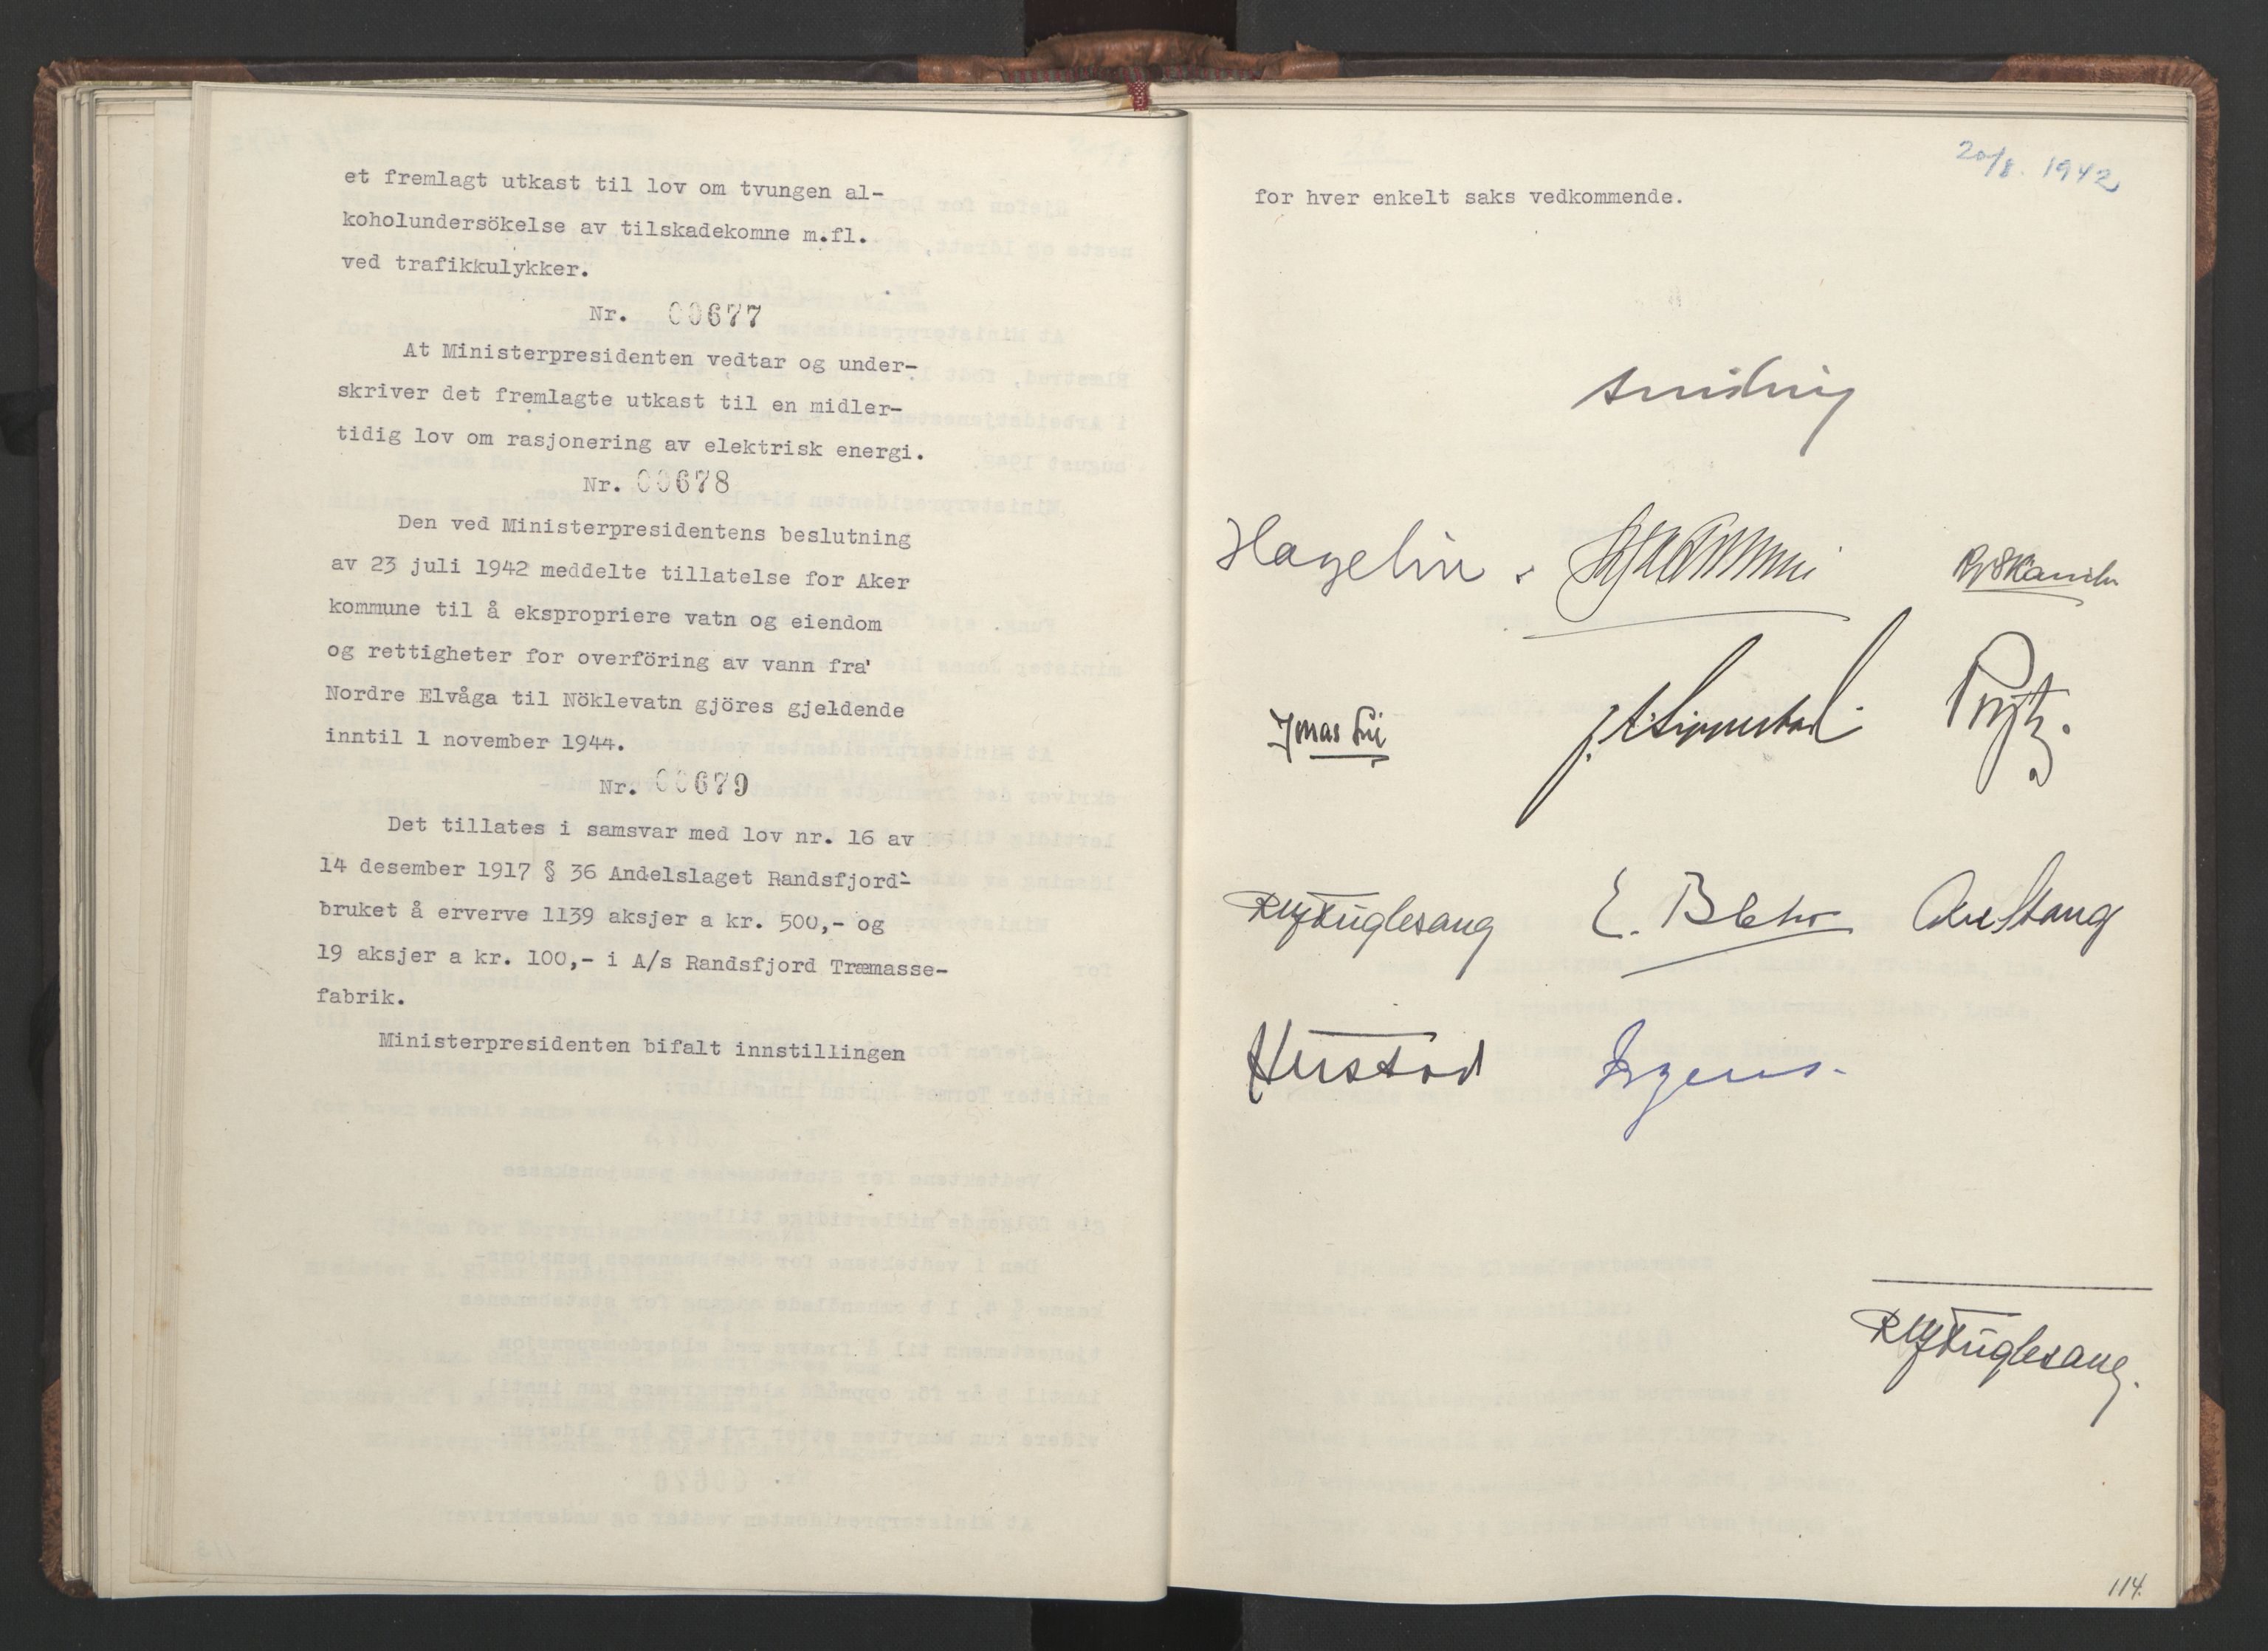 et fremlagt utkast til lov om tvungen al-
koholundersökelse av tilskadekomne m.fl.
ved trafikkulykker.
Nr. 00677
At Ministerpresidenten vedtar og under-
skriver det fremlagte utkast til en midler-
tidig lov om rasjonering av elektrisk energi.
Nr. 00678
Den ved Ministerpresidentens beslutning
av 23 juli 1942 meddelte tillatelse for Aker
kommune til å ekspropriere vatn og eiendom
og rettigheter for overföring av vann fra
Nordre Elvåga til Nöklevatn gjöres gjeldende
inntil 1 november 1944.
Nr. 00679
Det tillates i samsvar med lov nr. 16 av
14 desember 1917 § 36 Andelslaget Randsfjord-
bruket å erverve 1139 aksjer a kr. 500,- og
19 aksjer a kr. 100,- i A/s Randsfjord Træmasse-
fabrik.
Ministerpresidenten bifalt innstillingen
20/8. 1942
for hver enkelt saks vedkommende.
Quisling
Hagelin. R. J. Skancke
Jonas Lie Lippestad Prytz.
R J Fuglesang E. Blehr Axel Stang
Hustad Irgens.
R J Fuglesang.
114.